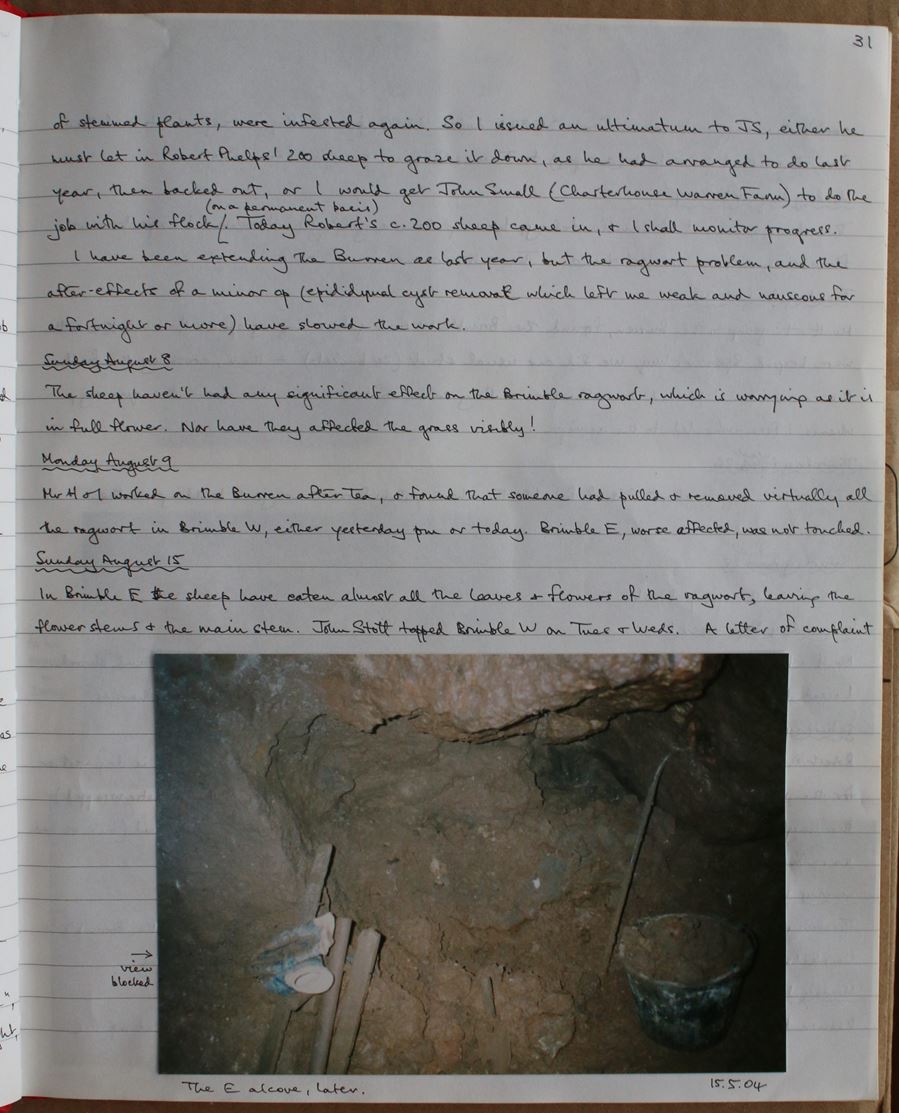 31
of stemmed plants, were infested again. So I issued an ultimatum to JS, either he
must let in Robert Phelps' 200 sheep to graze it down, as he had arranged to do last
year, then backed out, or I would get John Small (Charterhouse Warren Farm) to do the
(on a permanent basis)
job with his flock/. Today Robert's c. 200 sheep came in, & I shall monitor progress.
I have been extending the Burren as last year, but the ragwort problem, and the
after-effects of a minor op (epididymal cyst removal which left me weak and nauseous for
a fortnight or more) have slowed the work.
Sunday August 8
The sheep haven't had any significant effect on the Brimble ragwort, which is worrying as it is
in full flower. Nor have they affected the grass visibly!
Monday August 9
Mr H & I worked on the Burren after Tea, & found that someone had pulled & removed virtually all
the ragwort in Brimble W, either yesterday pm or today. Brimble E, worse affected, was not touched.
Sunday August 15
In Brimble E the sheep have eaten almost all the leaves & flowers of the ragwort, leaving the
flower stems & the main stem. John Stott topped Brimble W on Tues & Weds. A letter of complaint
→
view
blocked
The E alcove, later.
15.5.04